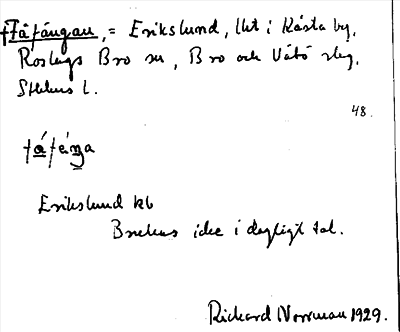 †Fåfångan, = Erikslund, lht i Kåsta by,
Roslags Bro sn, Bro och Vätö slg,
Sthlms l.
48.
Erikslund kb
Brukas icke i dagligt tal.
Richard Norrman 1929.